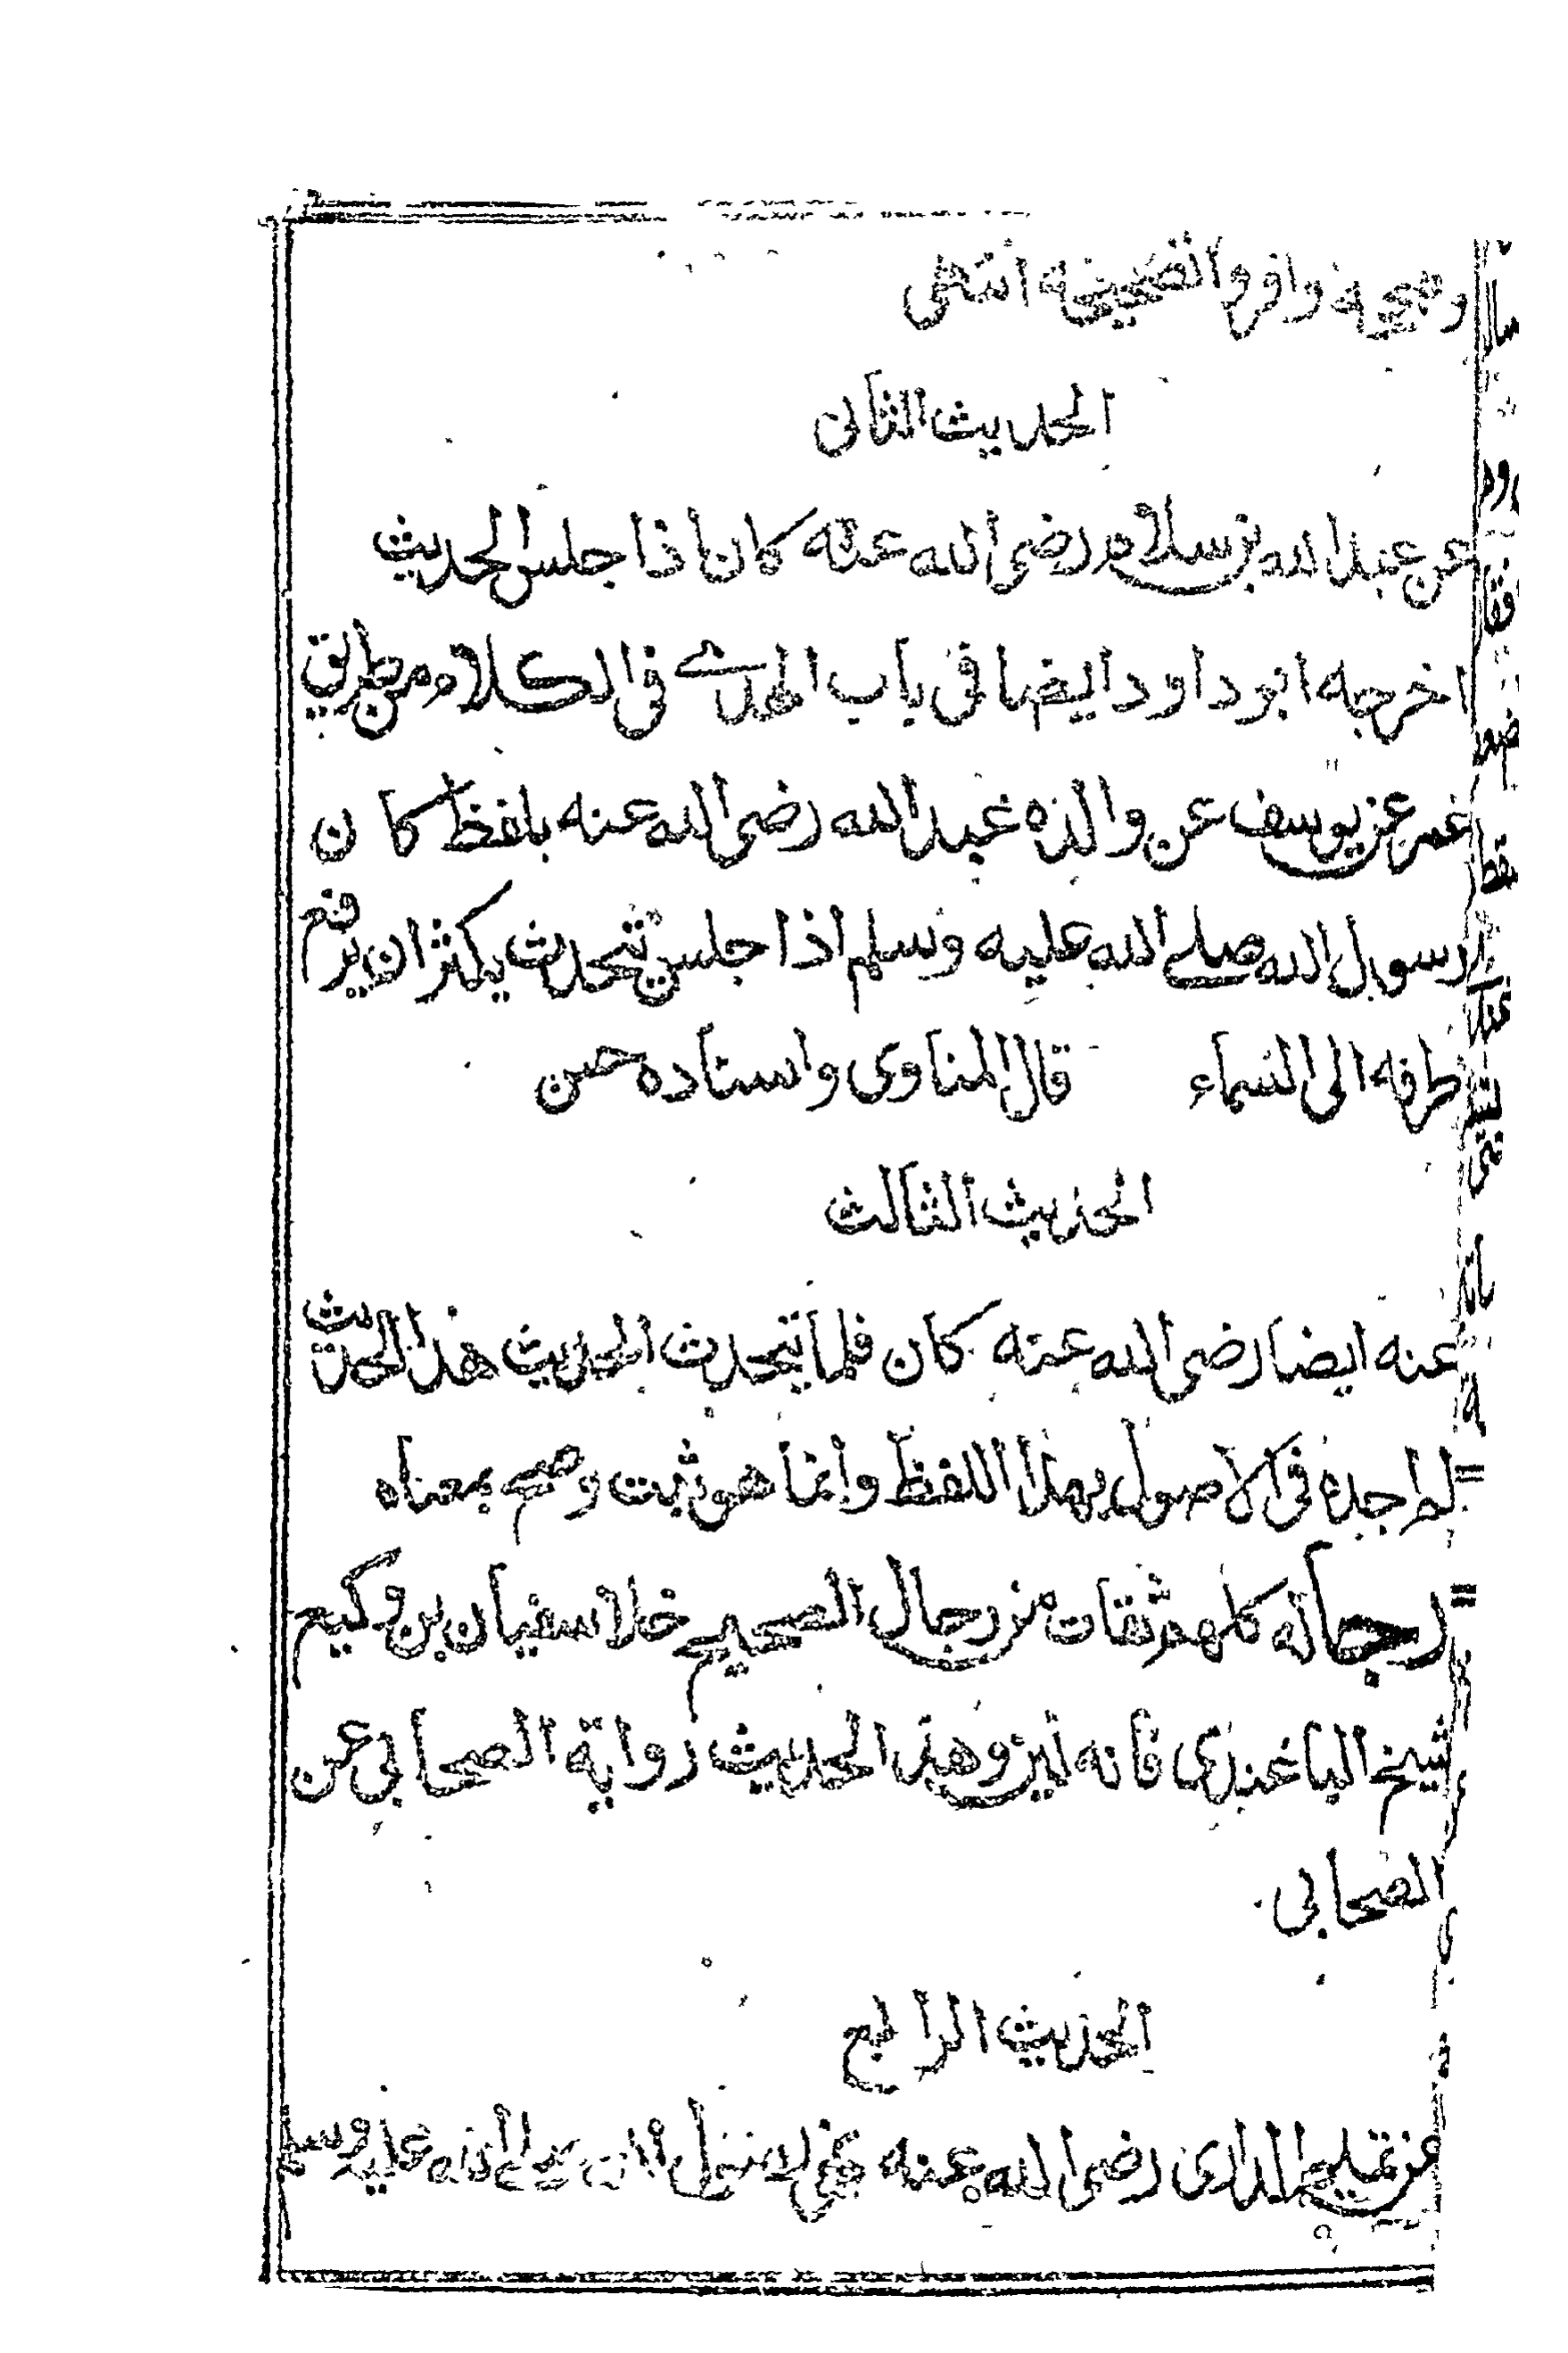 وصححه واقروا تصحيحه انتهى
الحديث الثانى
عن عبدالله بن سلام رضى الله عنه كان اذا جلس الحديث
اخرجه ابو داود ايضا فى باب الهدى فى الكلام من طريق
عمر عن يوسف عن والده عبدالله رضى الله عنه بلفظ كان
رسول الله صلى الله عليه وسلم اذا جلس يتحدث يكثر ان يرفع
طرفه الى السماء قال المناوى واسناده حسن
الحديث الثالث
عنه ايضا رضى الله عنه كان فلما تتحدث الحديث هذا الحديث
لم اجده فى الاصول بهذا اللفظ وانما هو ثبت وصح بمعناه
رجاله كلهم ثقات من رجال الصحيح خلا سفيان بن وكيع
شيخ الباغندى فانه لين وهذا الحديث رواية الصحابى عن
الصحابى
الحديث الرابع
عن تميم الدارى رضى الله عنه صلى الله عليه وسلم